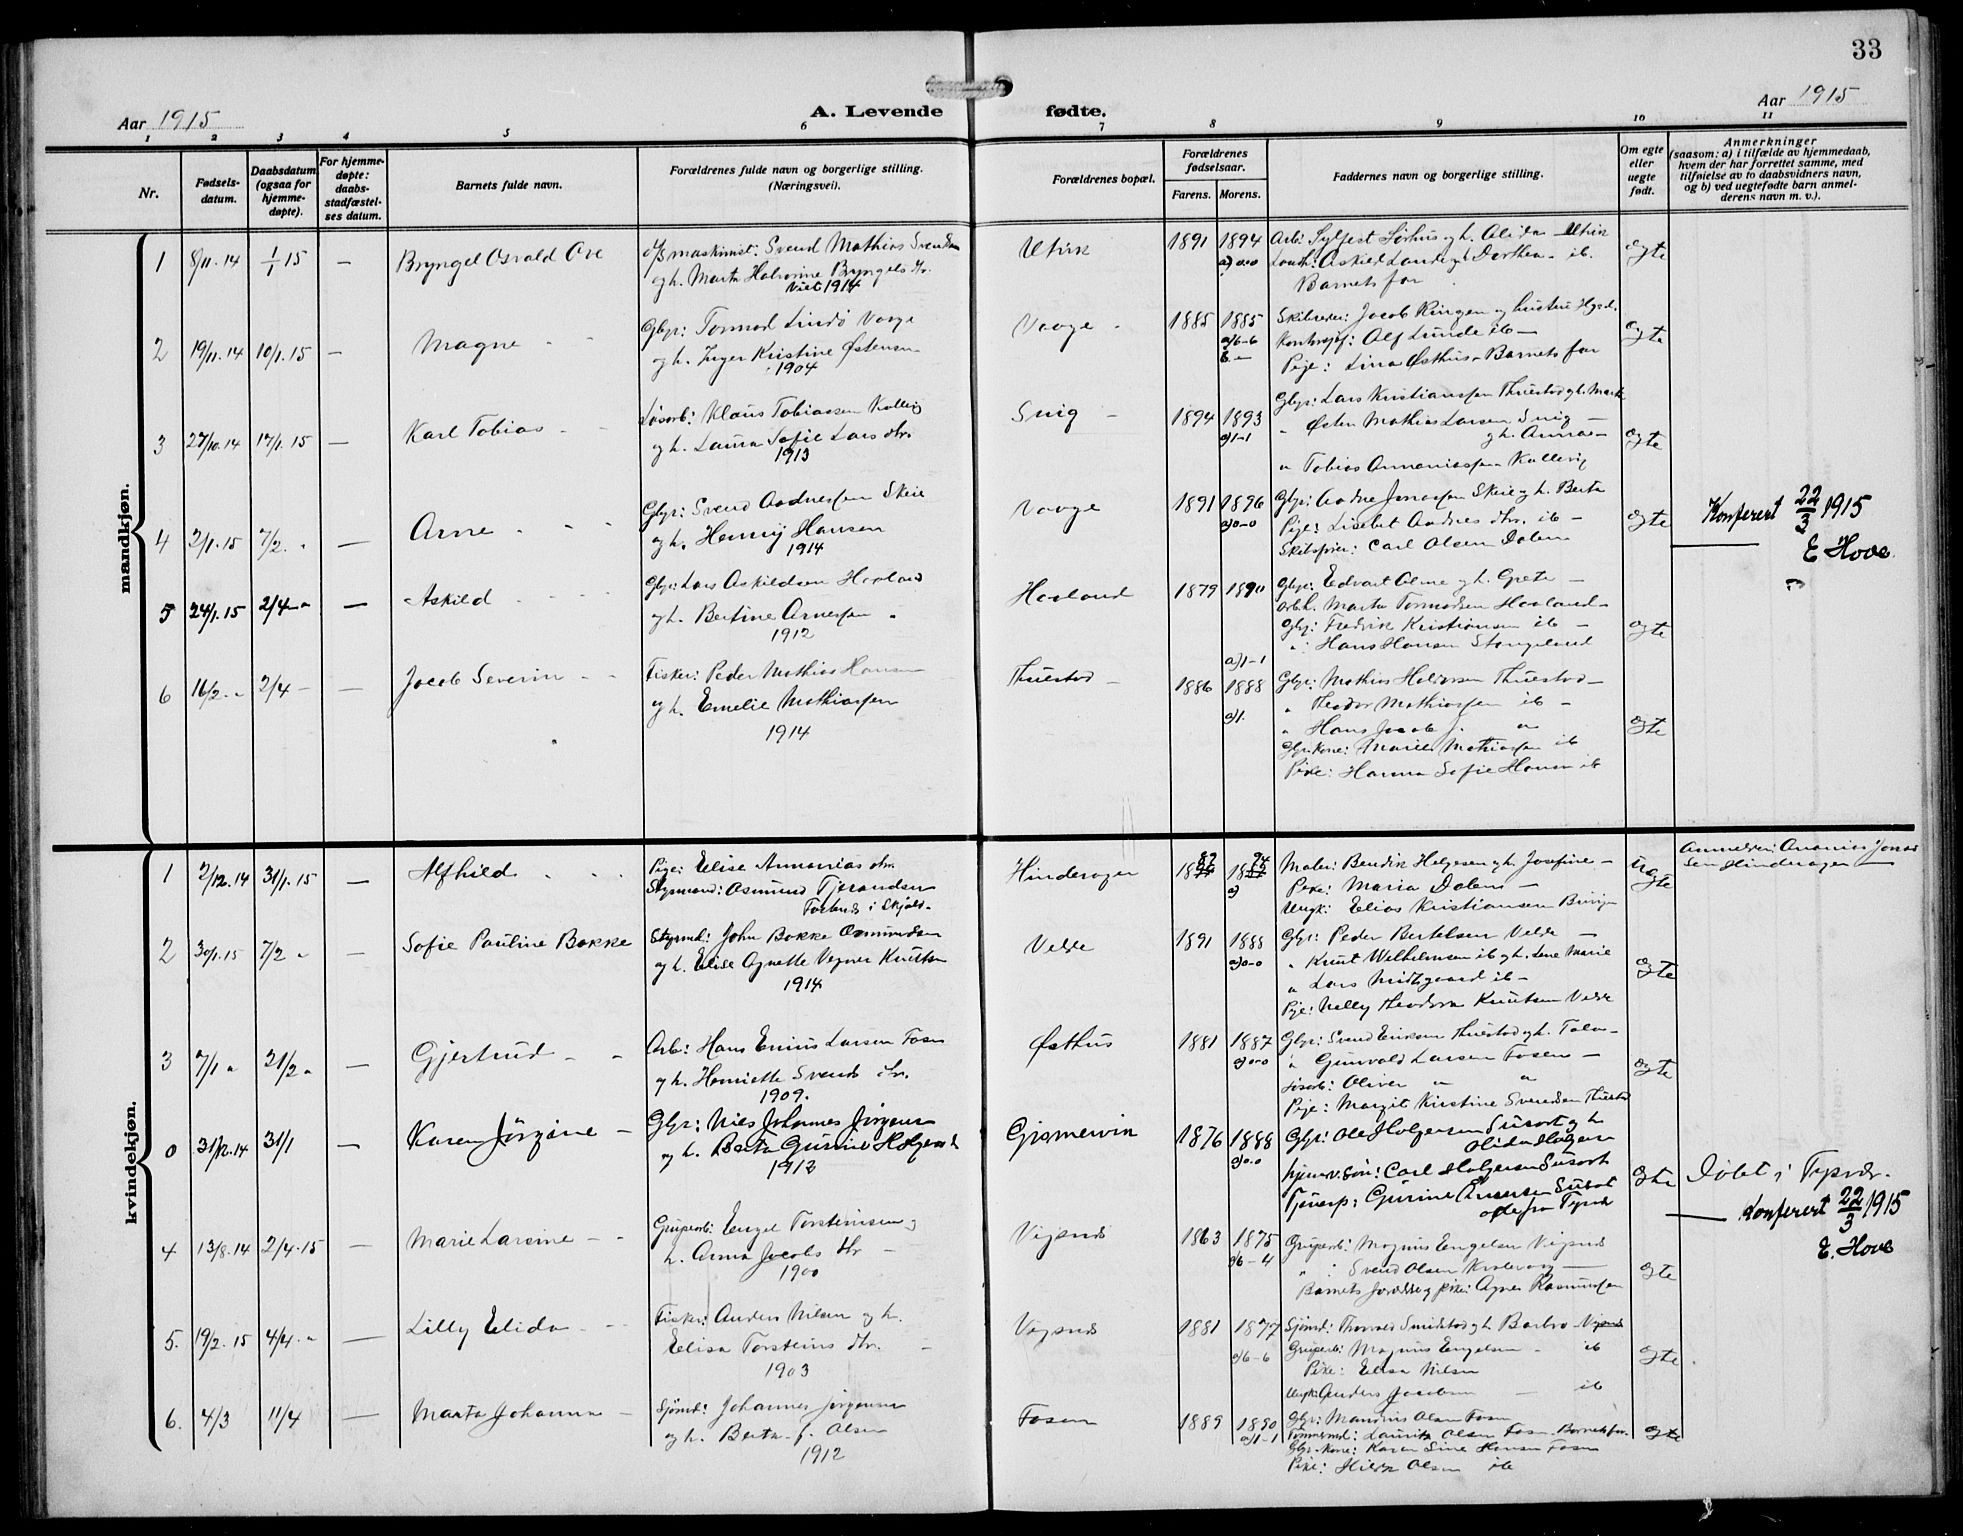 33
Aar 1915
A. Levende fødte.
Aar 1915
1 2 3 4 5 6 7 8 9 10 11
Nr.
Fødsels-
datum.
Daabsdatum
(ogsaa for
hjemme-
døpte).
For hjemme-
døpte:
daabs-
stadfæstel-
ses datum.
Barnets fulde navn.
Forældrenes fulde navn og borgerlige stilling.
(Næringsvei).
Forældrenes bopæl.
Forældrenes
fødselsaar.
Farens. Morens.
Faddernes navn og borgerlige stilling.
Om egte
eller
uegte
født.
Anmerkninger
(saasom: a) i tilfælde av hjemmedaab,
hvem der har forrettet samme, med
tilføielse av to daabsvidners navn,
og b) ved uegtefødte barn anmel-
derens navn m. v.).
mandkjøn.
1 8/11.14 1/1 15 — Bryngel Osvald Ove
maskinist: Svend Mathias
og h. Marta Halvorine Bryngels dtr.
Viet 1914
Utvik 1891 1894
Barnets far
egte
2 19/11.14 10/1.15 — Magne
Gbr: Tormod Lindö Vaage
og h. Inger Kristine Østensen
1904
Vaage 1885 1885
Alf Lunde ib —
Pige: Lina Østhus - Barnets far
egte
3 27/10.14 17/1.15 — Karl Tobias
Løsarb: Klaus Tobiassen Kallevig
og h. Laura Sofie Lars dtr.
1913
Snig 1894 1893
a) 1-1
Gbr: Lars Kristianssen Thuestad og h. Marta
" Østen Mathias Larsen Snig —
og h. Anna —
" Tobias Annaniassen Kallevig
egte
4 2/1.15 7/2. " — Arne
Gbr: Svend Aadnessen Skeie
og h. Henny Hansen
1914
Vaage 1891 1896
a) 0-0
Gbr: Aadne Jonassen Skeie og h. Berta
Pige: Lisebet Aadnes dtr. ib —
Carl Olsen Dalen
egte
Konferert 22/3 1915
E Hove
5 24/1.15 2/4 " — Askild
Gbr: Lars Askildsen Havland
og h. Bertine Arnessen
1912
Havland 1879 1890
Gbr: Edvart Alme og h. Grete —
Marta Tormodsen Havland —
Gbr: Fredrik Kristiansen ib —
" Hans Hansen Stangeland
egte
6 16/2. " 2/4 — — Jacob Severin
Fisker: Peder Mathias Hansen
og h. Emelie Mathiassen
1914
Thuestad — 1886 1888
Gbr: Mathias Halvorsen Thuestad —
" Theodor Mathiassen ib —
" Hans Jacob J. "
Gbr. Kone: Marie Mathiassen ib
Pike: Hanna Sofie Hansen ib
egte
kvindekjøn.
1 2/12.14 31/1.15 — Alfhild
Pige: Elise Annanias dtr.
Styrmand: Osmund Tjerandsen
i Skjold.
Hinderager
Maler: Bendik Helgesen og h. Josefine —
Pike: Maria Dalen —
Ungk: Elias Kristiansen
uegte
Anmelder: Ananias Jonas
sen Hinderager
2 30/1.15 7/2 " — Sofie Pauline Bakke
Styrmd: John Bakke Osmundsen
og h. Elise Agnette Vegner Knutsen
1914
Velde 1891 1888
a) 0-0
Gbr: Peder Bertelsen Velde —
" Knut Wilhelmsen ib og h. Lene Marie
" Lars Midtgaard ib —
Pige: Nelly Theodora Knutsen Velde
egte
3 7/1 " 21/2 " — Gjertrud
Arb: Hans Enius Larsen Fosen
og h. Henriette Svends dtr.
1909.
Østhus 1881 1887
a) 0-0
Gbr: Svend Eriksen Thuestad og h. Talen —
" Gunvald Larsen Fosen —
Løsarb: Oliver " "
Pige: Margit Kirstine Svendsen Thuestad
egte
0 31/12.14 31/1 — Karen Jörgine —
Gbr: Nils Johannes Jörgensen
og h. Berta Gurine Holgersd
1912
Gismervik 1876 1888
a) 0-0
Gbr: Ole Holgersen Susort og h
hjemv. Søn: Carl Holgersen Susort
Gurine
egte
Døbt i Tysvær.
Konferert 22/3 1915
E. Hove
4 13/8.14 2/4.15 — Marie Larsine
Grubearb: Engel Torsteinsen og
h. Anna Jacobs dtr —
1900
Vigsnes 1863 1875
a) 6-4
Grubearb: Magnus Engelsen Vigsnes
" Svend Olsen
Barnets Forældre og pike: Agnes Rasmussen
egte
5. 19/2.15 4/4. " — Lilly Elida
Fisker: Anders Nilsen og h.
Elisa Torsteins dtr. —
1903
Vigsnes 1881 1877
a) 6-6
Sjömd: Thorvald Smidstad og h. Barbro Vigsnes
Grubearb: Magnus Engelsen — ib
Pike: Elisa Nilsen
Ungk: Anders Jacobsen — ib
egte
6. 4/3 11/4 — Marta Johanna —
Sjömd: Johannes Jörgensen
og h. Berta J. Olsen
1912
Fosen 1889 1890
a) 1-1
Gbr: Mandius Olsen Fosen
Tømmermd: Lauritz Olsen Fosen - Barnets far.
Gbr. Kone: Karen Sine Hansen Fosen
Pike: Hilda Olsen ib
egte